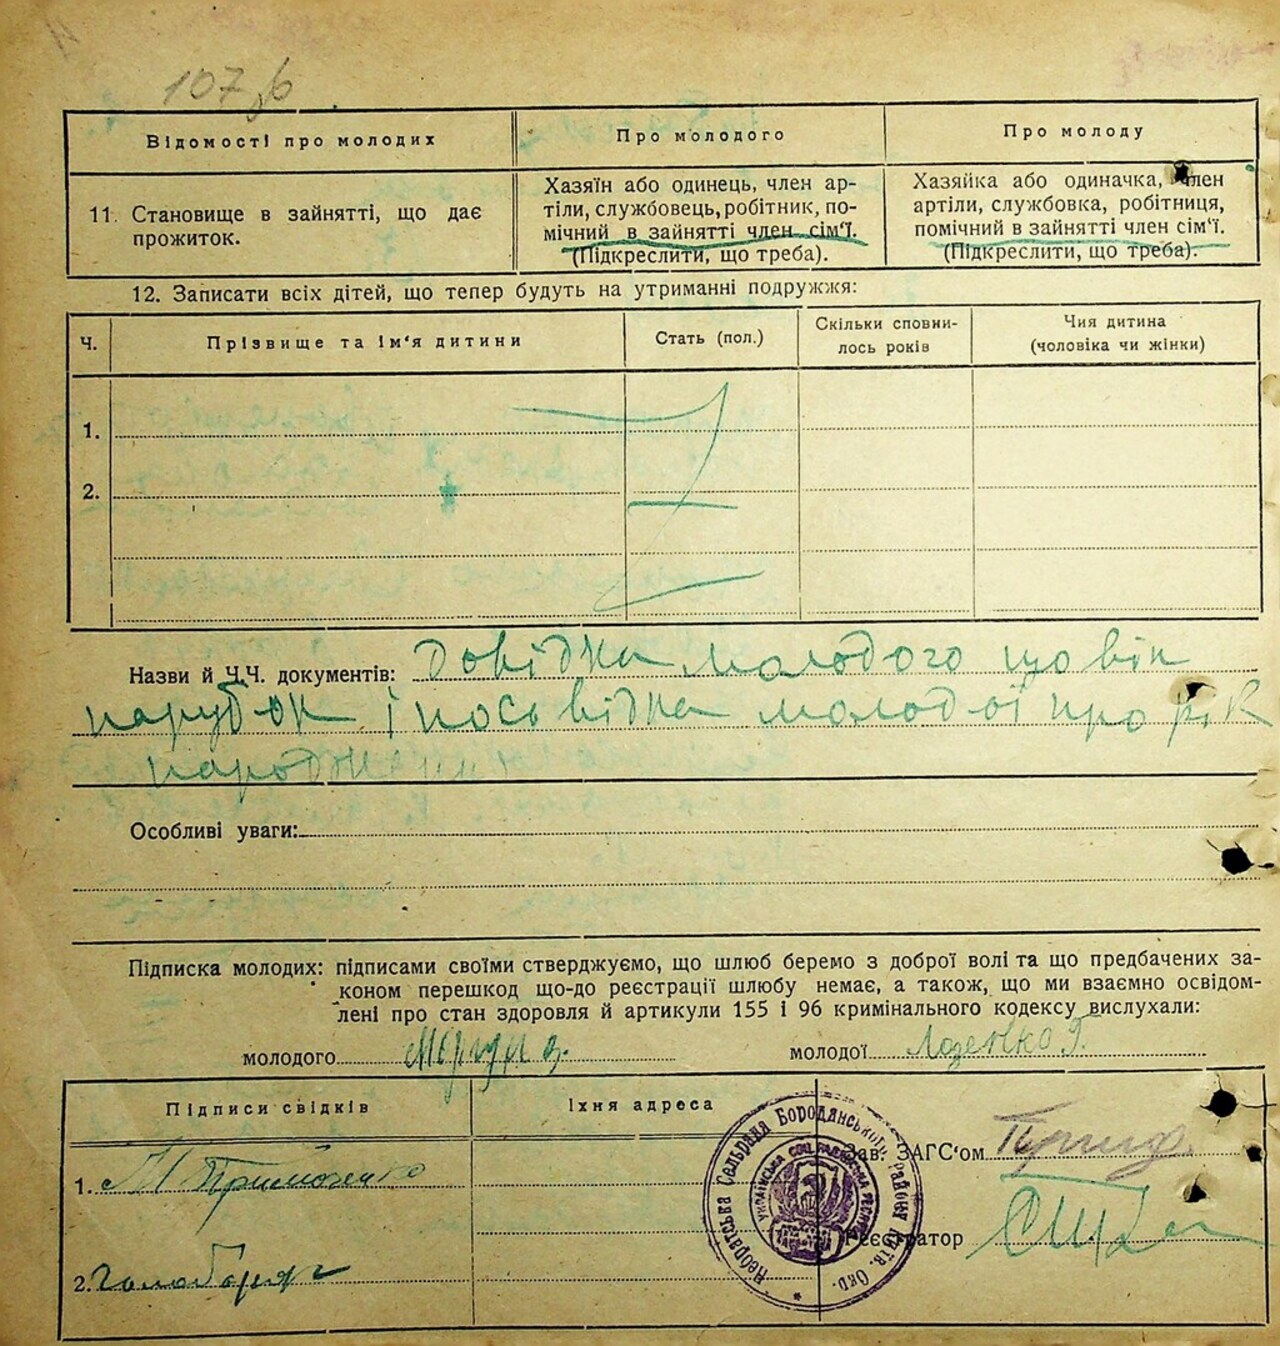 107 зв
Відомості про молодих
Про молодого
Про молоду
11. Становище в зайнятті, що дає
прожиток.
Хазяїн або одинець, член ар-
тіли, службовець, робітник, по-
мічний в зайнятті член сім'ї.
(Підкреслити, що треба).
Хазяйка або одиначка, член
артіли, службовка, робітниця,
помічний в зайнятті член сім'ї.
(Підкреслити, що треба).
12. Записати всіх дітей, що тепер будуть на утриманні подружжя:
Ч.
Прізвище та ім'я дитини
Стать (пол.)
Скільки сповни-
лось років
Чия дитина
(чоловіка чи жінки)
1.
2.
Назви й Ч.Ч. документів: Довідка молодого що він
парубок і посьвідка молодої про рік
народження
Особливі уваги:
Підписка молодих: підписами своїми стверджуємо, що шлюб беремо з доброї волі та що предбачених за-
коном перешкод що-до реєстрації шлюбу немає, а також, що ми взаємно освідом-
лені про стан здоровля й артикули 155 і 96 кримінального кодексу вислухали:
молодого
молодої Лозенко Г.
Підписи свідків
Їхня адреса
1.
2.
Зав. ЗАГС'ом
Реєстратор
Сельрада Бородянського району Київ. Окр.
Українська Соц. Радянська Респуб